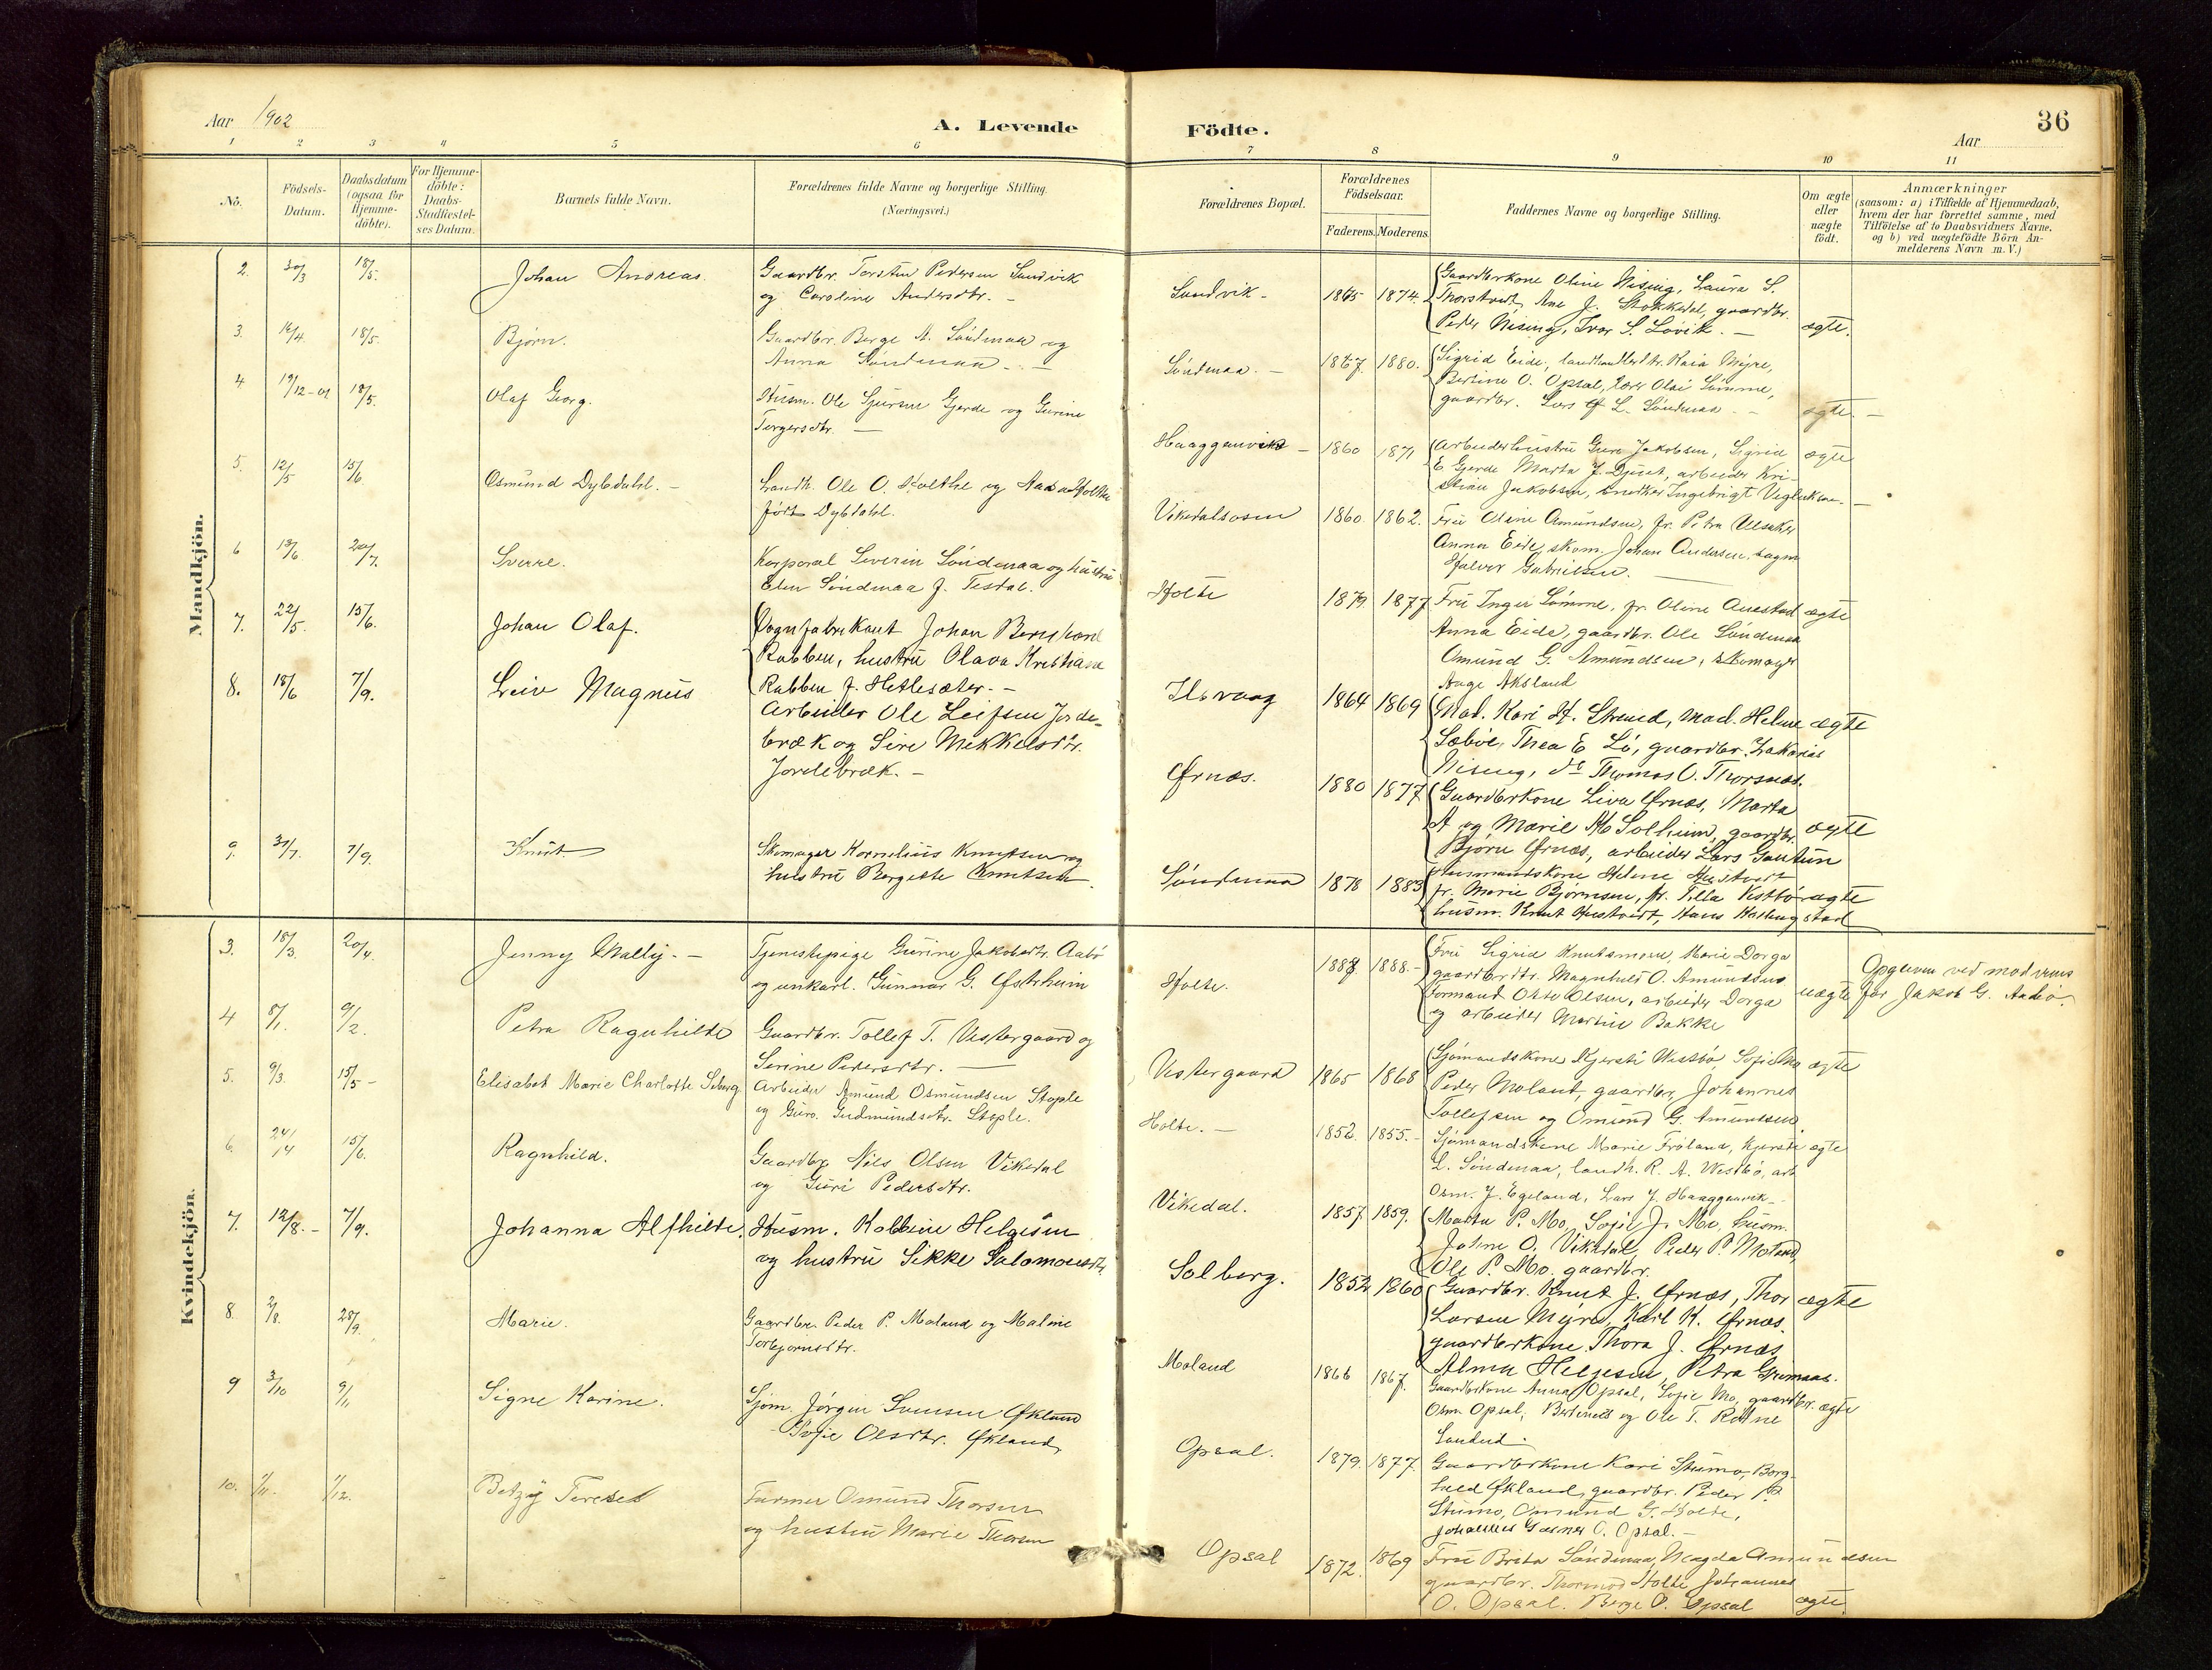 Aar 1902
A. Levende
Födte.
36
Aar
1 2 3 4 5 6 7 8 9 10 11
No.
Födsels-Datum.
Daabsdatum (ogsaa for Hjemme-döbte).
For Hjemme-döbte: Daabs-Stadfæstel-ses Datum.
Barnets fulde Navn.
Forældrenes fulde Navne og borgerlige Stilling.
(Næringsvei.)
Forældrenes Bopæl.
Forældrenes Födselsaar.
Faderens. Moderens.
Faddernes Navne og borgerlige Stilling.
Om ægte eller uægte födt.
Anmærkninger
(saasom: a) i Tilfælde af Hjemmedaab,
hvem der har forrettet samme, med
Tilföielse af to Daabsvidners Navne.
og b) ved uægtefödte Börn An-
melderens Navn m. V.)
Mandkjön.
2. 30/3 18/5. Johan Andreas. Gaardbr. Torsten Pedersen Sandvik
og Caroline Andersdtr. –
Sandvik – 1865 1874. Gaardbrkone Oline Nising, Laura S.
Thorstvedt, Ane J. Stokkedal, gaardbr.
Peder Nising, Ivar S. Løvik. – ægte.
3. 16/4 18/5. Bjørn. Gaardbr. Berge A. Søndenaa og
Anna Søndenaa –
Søndenaa. – 1867 1880. Sigrid Eide, landhandlerdtr. Kaia Myre,
Bertine O. Opsal, lærer Olai Sømme,
gaardbr. Lars L. Søndenaa – ægte. –
4 19/12-01 18/5. Olaf Georg. Husm. Ole Sjursen Gjerde og Gurine
Torgersdtr. –
Haagganvik – 1860 1871 Arbeiderhustru Gure Jakobsen, Sigrid ægte
E Gjerde Marta J. Djuset, arbeider Kri-
stian Jakobsen, snedker Ingebrigt
5. 12/5 15/6 Osmund Dybdahl. – Landh. Ole O. Holthe og Holthe
født Dybdahl.
Vikedalsosen 1860 1862. Fru Oline Amundsen, fr. Petra
Anna Eide, skom. Johan Andersen. sagm
Halvor Gabrielsen. –
6 13/6 20/7. Sverre. Korporal Severin Søndenaa og hustru
Elen Søndenaa f. Tesdal.
Holte 1879 1877 Fru Inger Sømme, fr. Oline Auestad ægte
Anna Eide, gaardbr. Ole Søndenaa
Omund G. Amundsen, skomager
Aage Aksland
7. 22/5. 15/6. Johan Olaf. Vognfabrikant Johan Bernhard
Rabben, hustru Olava Kristiane
Rabben f. Hetlesæter. –
Ilsvaag 1864 1869 Mad. Kari H. Strand, mad. Helene ægte
Sæbøe, Thea E Lø, gaardbr. Zakarias
Nising, do Thomas O. Thorsnæs.
8. 18/6 7/9. Leiv Magnus Arbeider Ole Leifsen Jorde-
bræk og Sire Mikkelsdtr.
Jordebræk. –
Ørnæs. 1880 1877 Gaardbrkone Liva Ørnæs, Marta
A og Marie M Solheim, gaardbr. ægte
Bjørn Ørnæs, arbeider Lars Gautun
9. 31/7. 7/9. Knut Skomager Kornelius Knutsen og
hustru Bergitte Knutsen.
Søndenaa 1878 1883 Husmandskone Helene Hustvedt
fr. Marie Bjørnsen, fr. Tilla Vestbø ægte
husm. Knut Hustvedt, Hans
Kvindekjön.
3. 18/3. 20/4. Jenny Mally. – Tjenestepige Gurine Jakobsdtr. Aabø
og unkarl. Gunnar G. Østrheim
Holte. 1888. – Fru Sigrid Knutsmoen, Marie Dorga
gaardbrdtr. Magnhild O. Amundsen
Formand Otto Olsen, arbeider Dorga uægte
og arbeider Martin Bakke
Opgiven ved moderens
far Jakob G. Aabø.
4 8/1. 9/2. Petra Ragnhilde Gaardbr. Tollef T. Vestergaard og
Serine Pedersdtr. –
Vestergaard 1865 1868 Sjømandskone Kjersti Westbø, Sofie Mo ægte
Peder Moland, gaardbr. Johannes
Tollefsen og Omund G. Amundsen.
5. 9/3. 15/5 – Elisabet Marie Charlotte Arbeider Amund Osmundsen Stople
og Guro Gudmundsdtr. Stople.
Holte. – 1852. 1855. – Sjømandskone Marie Frøland, Kjersti ægte
L. Søndenaa, landh. R. A. Westbø, arb
Osm. J. Egeland, Lars J. Haagganvik –
6. 24/4 15/6. Ragnhild. Gaardbr. Nils Olsen Vikedal
og Guri Pedersdtr.
Vikedal. 1857 1859. Marta P. Mo, Sofie J. Mo, husm.
O. Vikedal, Peder P Moland,
Ole P. Mo. gaardbr.
7. 12/8. – 7/9. Johanna Alfhilde. Husm. Kolbein Helgesen
og hustru Sikke Salomonsdtr.
Solberg. 1852 1860 Gaardbr. Knut J. Ørnæs, Thor ægte
Larsen Myre, Karl K. Ørnæs.
gaardbrkone Thora J. Ørnæs
Alma Helgesen, Petra
8. 2/8. 28/9. Marie. Gaardbr. Peder P. Moland og Malene
Torbjørnsdtr.
Moland 1866 1867. Gaardbrkone Anna Opsal, Sofie Mo, gaardbr. ægte
Osm. Opsal, og Ole T.
9 3/10 9/11 Signe Karine. Sjøm. Jørgen Svensen Økland
Sofie Olsdtr. Økland,
Opsal. 1879. 1877. Gaardbrkone Kari Stumo, Borg-
hild Økland, gaardbr. Peder P.
Stumo, Omund G. Holte,
Johannes O. Opsal. –
10. 1/11. 1/12. Betzy Terese Farmer Omund Thorsen
og hustru Marie Thorsen
Opsal 1872. 1869 Fru Brita Søndenaa, Magda Amundsen
gaardbr. Thormod Holte Johannes
O. Opsal. Berge O. Opsal ægte.